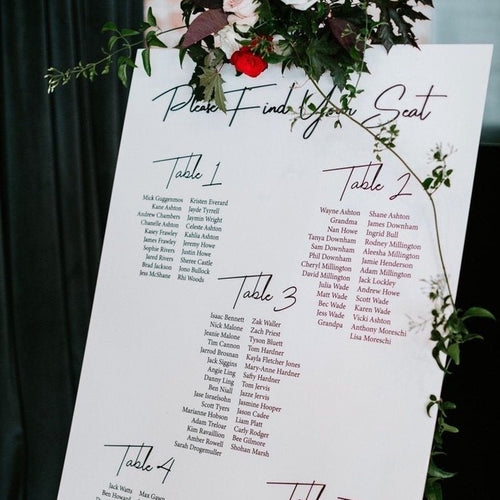 Please Find Your Seat
Table 1
Mick Guggenmos Kristen Everard
Kane Ashton Jayde Tyrrell
Andrew Chambers Jaymin Wright
Chanelle Ashton Celeste Ashton
Kasey Frawley Kahlia Ashton
James Frawley Jeremy Howe
Sophie Rivers Justin Howe
Jared Rivers Sheree Castle
Brad Jackson Jono Bullock
Jess McShane Rhi Woods
Table 2
Wayne Ashton Shane Ashton
Grandma James Downham
Nan Howe Ingrid Bull
Tanya Downham Rodney Millington
Sam Downham Aleesha Millington
Phil Downham Jamie Henderson
Cheryl Millington Adam Millington
David Millington Jack Lockley
Julia Wade Andrew Howe
Matt Wade Scott Wade
Bec Wade Karen Wade
Jess Wade Vicki Ashton
Grandpa Anthony Moreschi
Lisa Moreschi
Table 3
Isaac Bennett Zak Waller
Nick Malone Zach Priest
Jeanie Malone Tyson Bluett
Tim Cannon Tom Hardner
Jarrod Brosnan Kayla Fletcher Jones
Jack Siggins Mary-Anne Hardner
Angie Ling Safty Hardner
Danny Ling Tom Jervis
Ben Niall Jazze Jervis
Jase Israelsohn Jasmine Hooper
Scott Tyers Jason Cadee
Marianne Hobson Liam Platt
Adam Treloar Carly Rodger
Kim Ravaillion Bee Gilmore
Amber Rowell Shohan Marsh
Sarah Drogemuller
Table 4
Jack Watts Max Gawn
Ben Howard